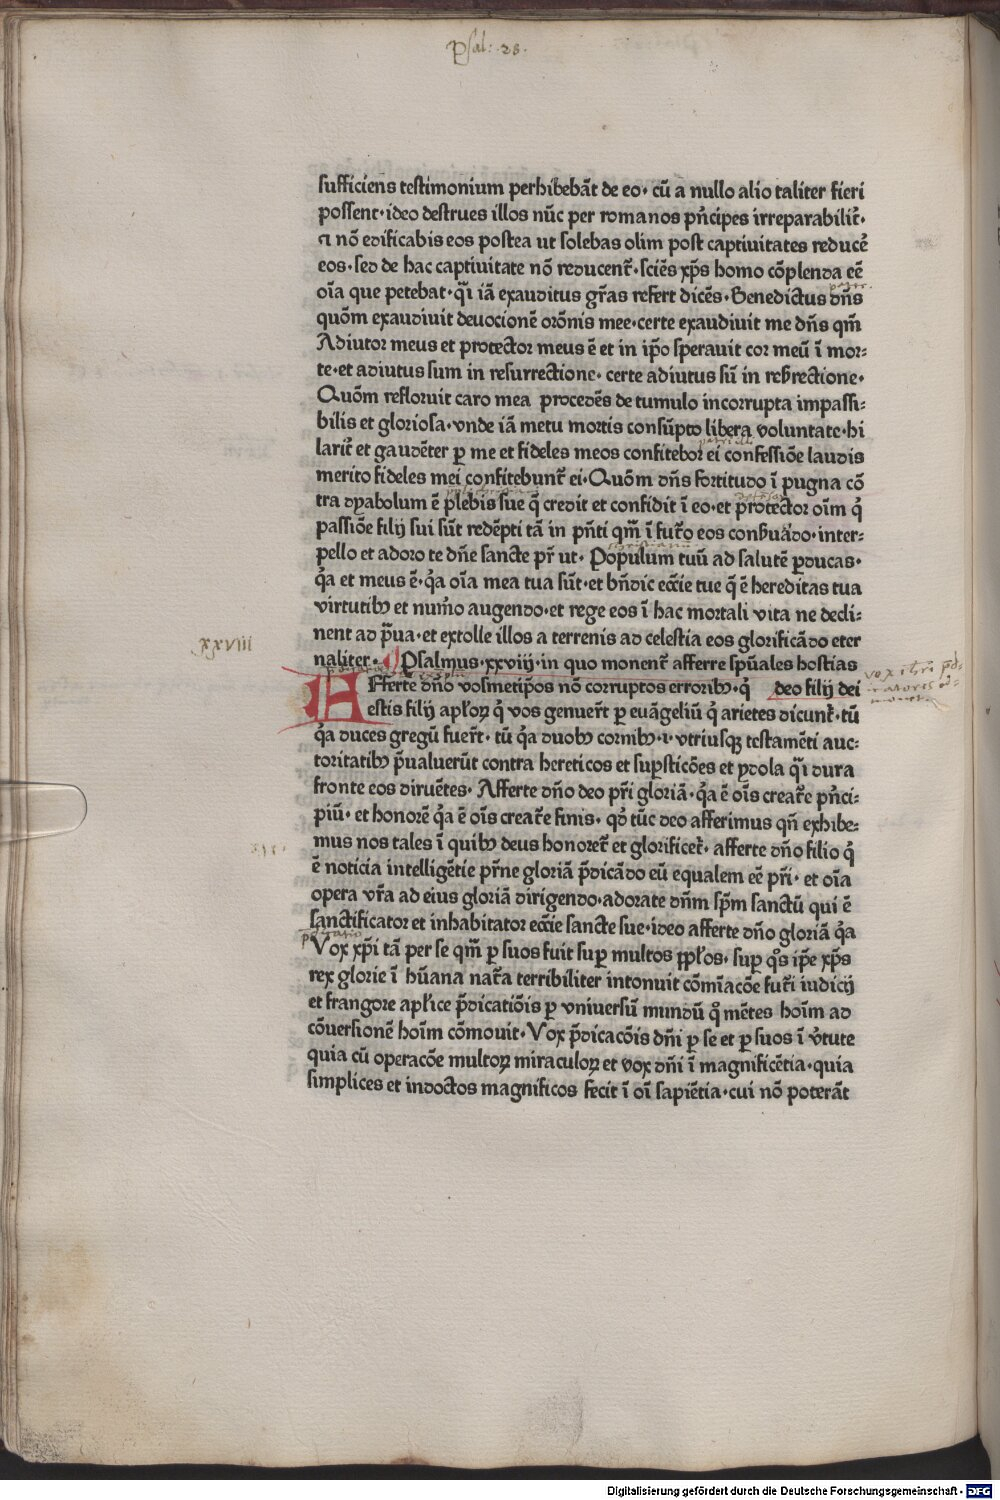 Psal: 28.
sufficiens testimonium perhibebāt de eo· cū a nullo alio taliter fieri
possent·ideo destrues illos nūc per romanos pñcipes irreparabilit᷑·
⁊ nō edificabis eos postea ut solebas olim post captiuitates reducē
eos·sed de hac captiuitate nō reducent᷑·sciēs xp̄s homo cōplenda eē
oīa que petebat·qͥ iā exauditus gr̄as refert dicēs·Benedictus dn̄s
quōm exaudiuit deuocionē orōnis mee·certe exaudiuit me dn̄s qm̄
Adiutor meus et protector meus ē et in ip̄o sperauit cor meū ī mor=
te·et adiutus sum in resurrectione· certe adiutus sū in reb᷑rectione·
Quōm refloruit caro mea procedēs de tumulo incorrupta impassi=
bilis et gloriosa·vnde iā metu mortis consūpto libera voluntate·hi
larit᷑ et gaudēter ꝑ me et fideles meos confitebor ei confessiōe laudis
merito fideles mei confitebunt᷑ ei·Quōm dn̄s fortitudo ī pugna cō
tra dyabolum ē plebis sue q̄ credit et confidit ī eo·et protector oīm qͥ
passiōe filij sui sūt redēpti tā in pn̄ti qm̄ ī fut᷑o eos conb᷑uādo·inter=
pello et adoro te dn̄e sancte pr̄ ut· Populum tuū ad salutē ꝑducas·
qͣa et meus ē·qͣa oīa mea tua sūt·et bn̄dic eccīe tue q̄ ē hereditas tua
virtutibꝫ et num̄o augendo·et rege eos ī hac mortali vita ne decli=
nent ad p̄ua·et extolle illos a terrenis ad celestia eos glorificādo eter
xxviii
naliter· Psalmus·xxviij·in quo monent᷑ afferre spūales hostias
AFferte dn̄o vosmetip̄os nō corruptos erroribꝫ·qͥ deo filij dei
estis filij apl̄oꝝ qͥ vos genuer̄t ꝑ euāgeliū qͥ arietes dicunt᷑·tū
qͣa duces gregū fuer̄t· tū qͣa duobꝫ cornibꝫ·ı·vtriusqꝫ testamēti auc=
toritatibꝫ p̄ualuerūt contra hereticos et suꝑsticōes et ydola qͥ dura
fronte eos diruētes· Afferte dn̄o deo pr̄i gloriā·qͣa ē oīs creat᷑e pn̄ci=
piū· et honorē qͣa ē oīs creat᷑e finis· qd̄ tūc deo afferimus qn̄ exhibe=
mus nos tales ī quibꝫ deus honoret᷑ et glorificet᷑· afferte dn̄o filio qͥ
ē noticia intelligētie pr̄ne gloriā p̄dicādo eū equalem eē pr̄i· et oīa
opera vr̄a ad eius gloriā dirigendo·adorate dn̄m sp̄m sanctū qui ē
sanctificator et inhabitator eccīe sancte sue·ideo afferte dn̄o gloriā qͣa
Vox xp̄i tā per se qm̄ ꝑ suos fuit suꝑ multos pp̄l̄os· suꝑ qͦs ip̄e xp̄s
rex glorie ī hūana nat᷑a terribiliter intonuit cōmīacōe fut᷑i iudicij
et frangore apl̄ice p̄dicatiōis ꝑ vniuersū mundū qͦ mētes hoīm ad
cōuersionē hoīm cōmouit· Vox p̄dicacōis dn̄i ꝑ se et ꝑ suos ī v᷑tute
quia cū operacōe multoꝝ miraculoꝝ et vox dn̄i ī magnificētia·quia
simplices et indoctos magnificos fecit ī oī sapiētia·cui nō poterāt
Digitalisierung gefördert durch die Deutsche Forschungsgemeinschaft - DFG